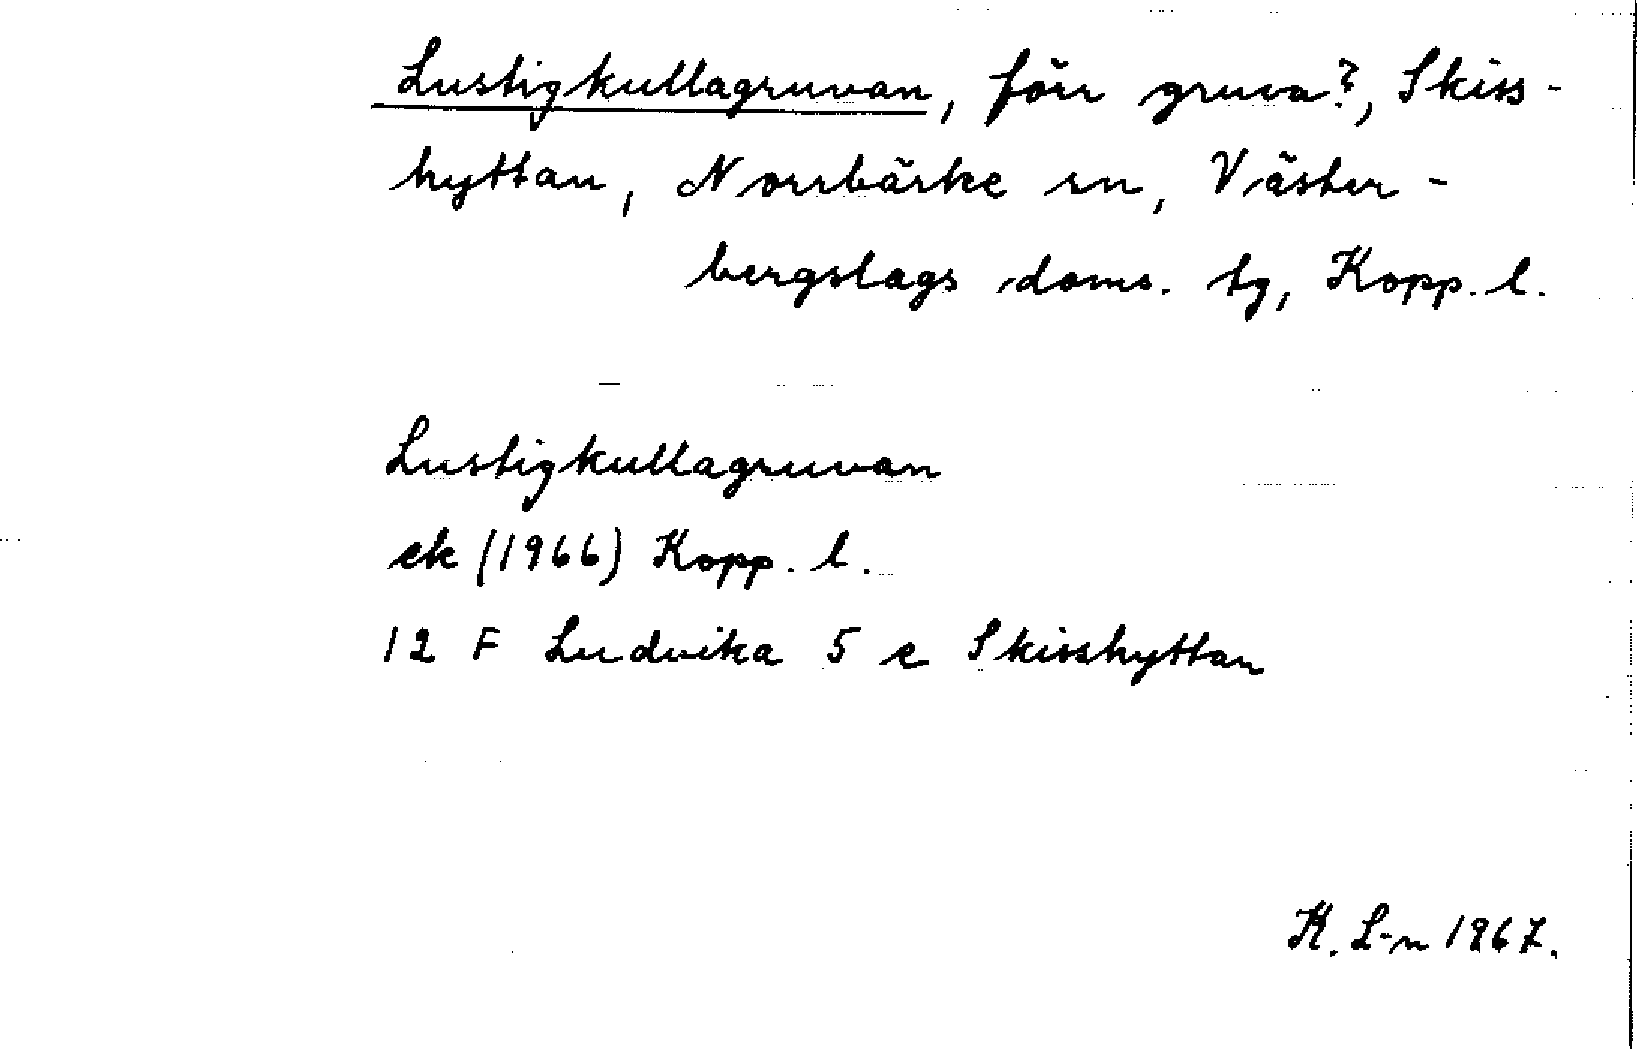 Lustigkullagruvan, förr gruva?, Skiss-
hyttan, Norrbärke sn, Väster-
bergslags doms. tg, Kopp. l.
Lustigkullagruvan
ek (1966) Kopp. l.
12 F Ludvika 5 e Skisshyttan
K. L-n 1967.